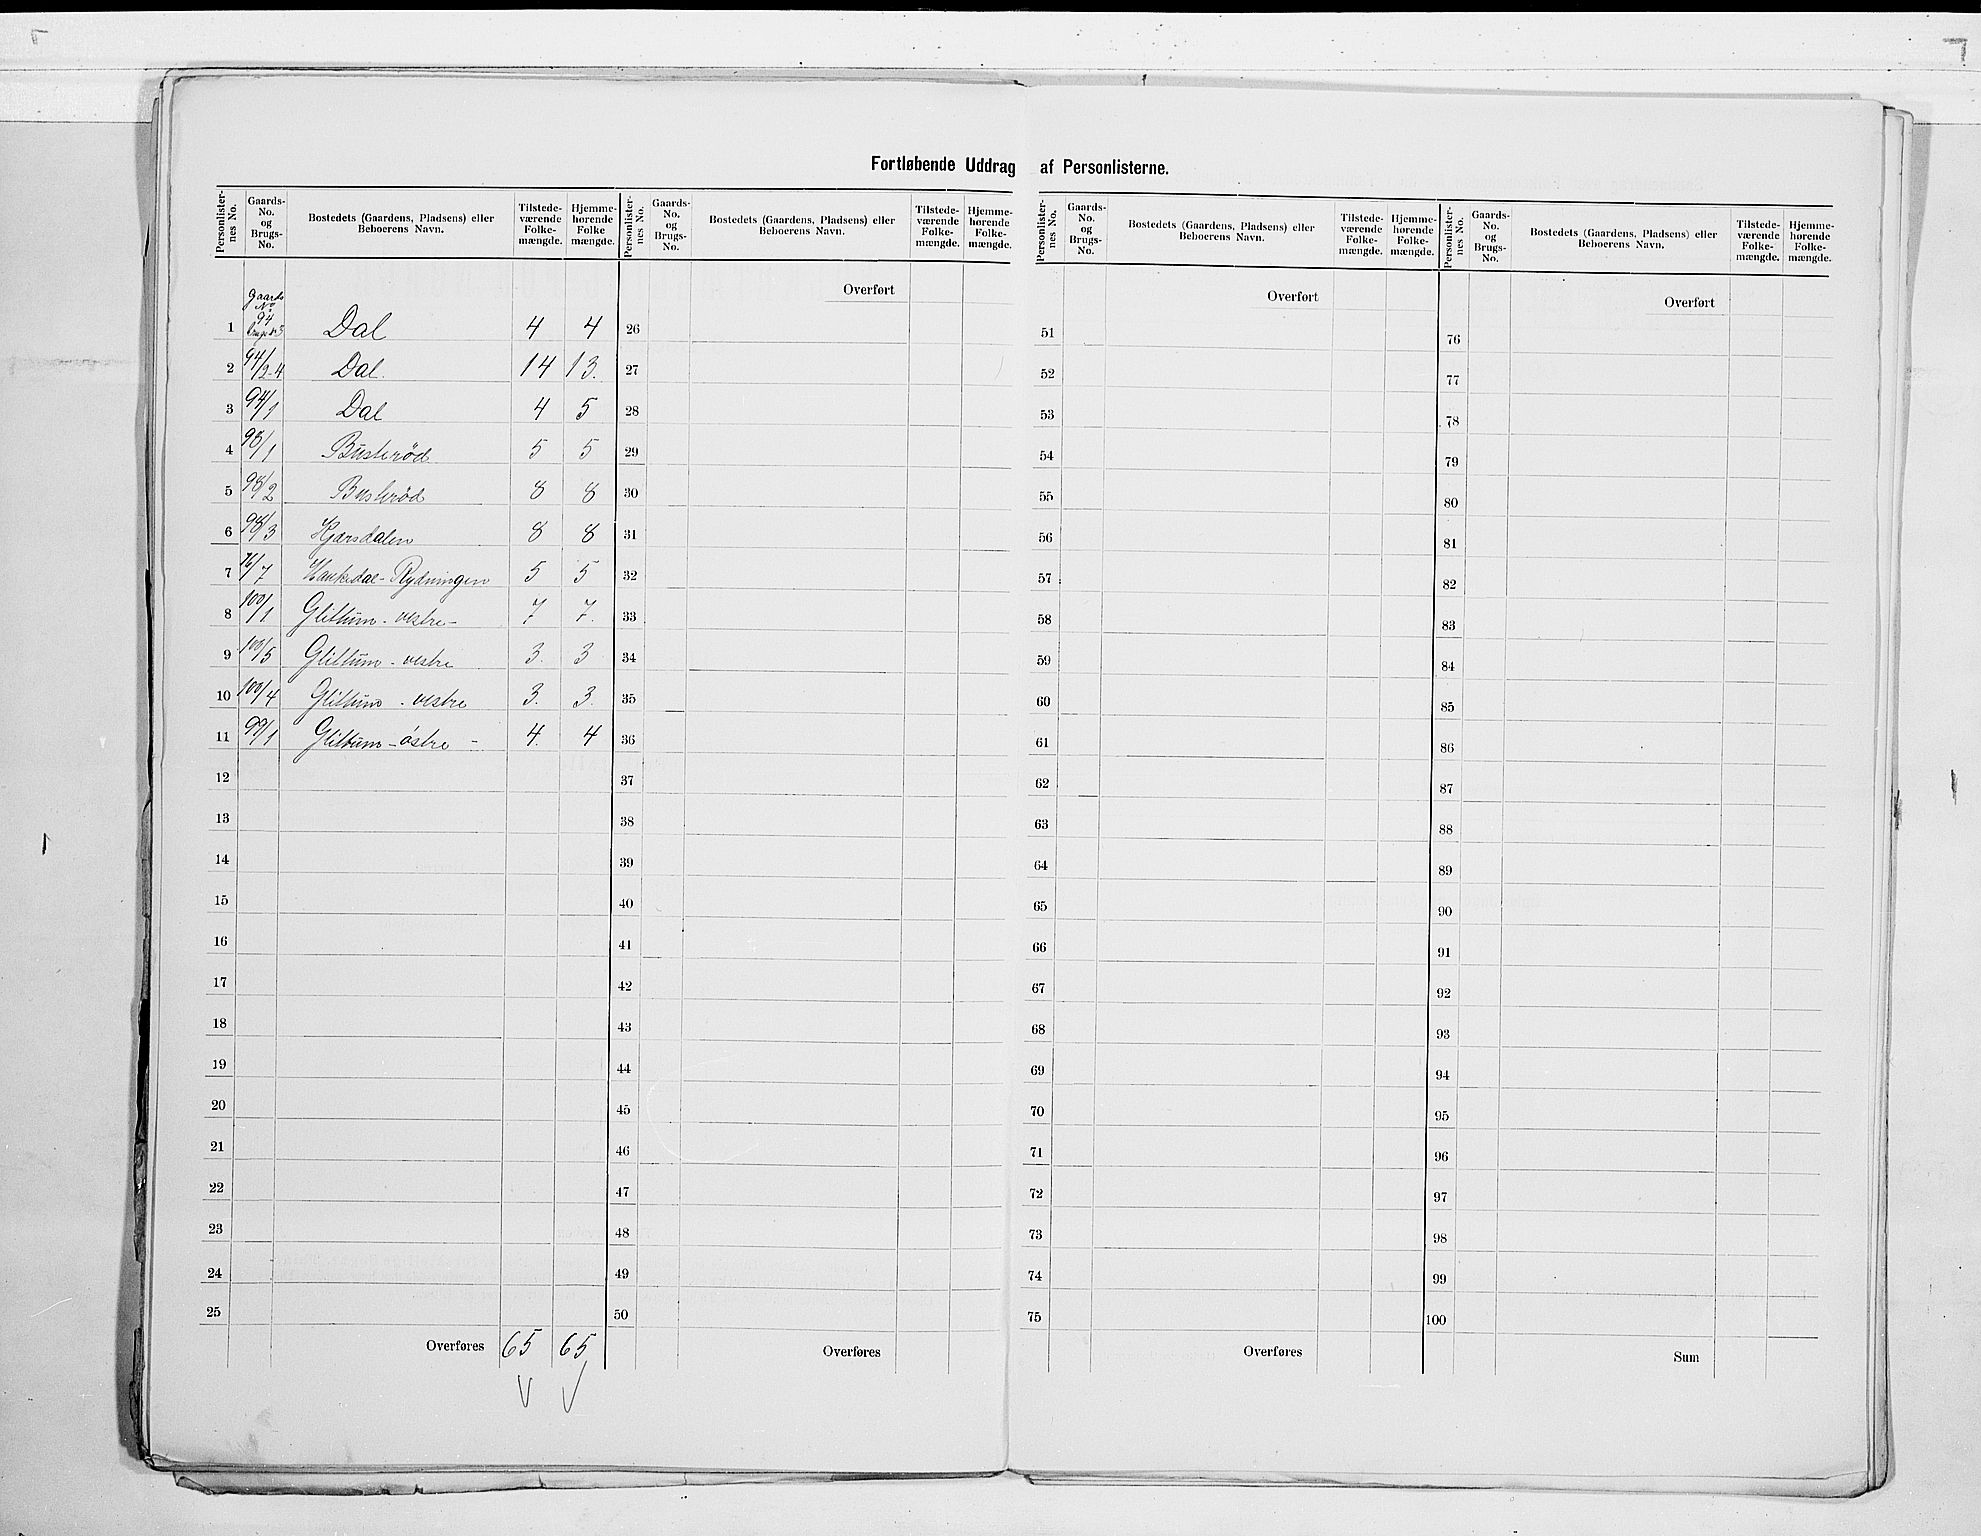 Fortløbende Uddrag af Personlisterne.
Personlister-nes No. | Gaards-No. og Brugs-No. | Bostedets (Gaardens, Pladsens) eller Beboerens Navn. | Tilstede-værende Folke-mængde. | Hjemme-hørende Folke mængde.
1 | Gaards No 94 Brugs No 3 | Dal | 4 | 4
2 | 94/2-4 | Dal. | 14 | 13.
3 | 94/1 | Dal | 4 | 5
4 | 98/1 | Busterød | 5 | 5
5 | 98/2 | Busterød | 8 | 8
6 | 98/3 | Hjørsdalen | 8 | 8
7 | 76/7 | Haukedal-Rydningen | 5 | 5
8 | 100/1 | Glittum - vestre - | 7 | 7.
9 | 100/5 | Glittum - vestre | 3. | 3
10 | 100/4 | Glittum - vestre | 3. | 3.
11 | 99/1 | Glittum - östre - | 4. | 4
12
13
14
15
16
17
18
19
20
21
22
23
24
25
Overføres 65 65
Personlister-nes No. | Gaards-No. og Brugs-No. | Bostedets (Gaardens, Pladsens) eller Beboerens Navn. | Tilstede-værende Folke-mængde. | Hjemme-hørende Folke-mængde.
Overført
26
27
28
29
30
31
32
33
34
35
36
37
38
39
40
41
42
43
44
45
46
47
48
49
50
Overføres
Personlister-nes No. | Gaards-No. og Brugs-No. | Bostedets (Gaardens, Pladsens) eller Beboerens Navn. | Tilstede-værende Folke-mængde. | Hjemme-hørende Folke-mængde.
Overført
51
52
53
54
55
56
57
58
59
60
61
62
63
64
65
66
67
68
69
70
71
72
73
74
75
Overføres
Personlister-nes No. | Gaards-No. og Brugs-No. | Bostedets (Gaardens, Pladsens) eller Beboerens Navn. | Tilstede-værende Folke-mængde. | Hjemme-hørende Folke-mængde.
Overført
76
77
78
79
80
81
82
83
84
85
86
87
88
89
90
91
92
93
94
95
96
97
98
99
100
Sum